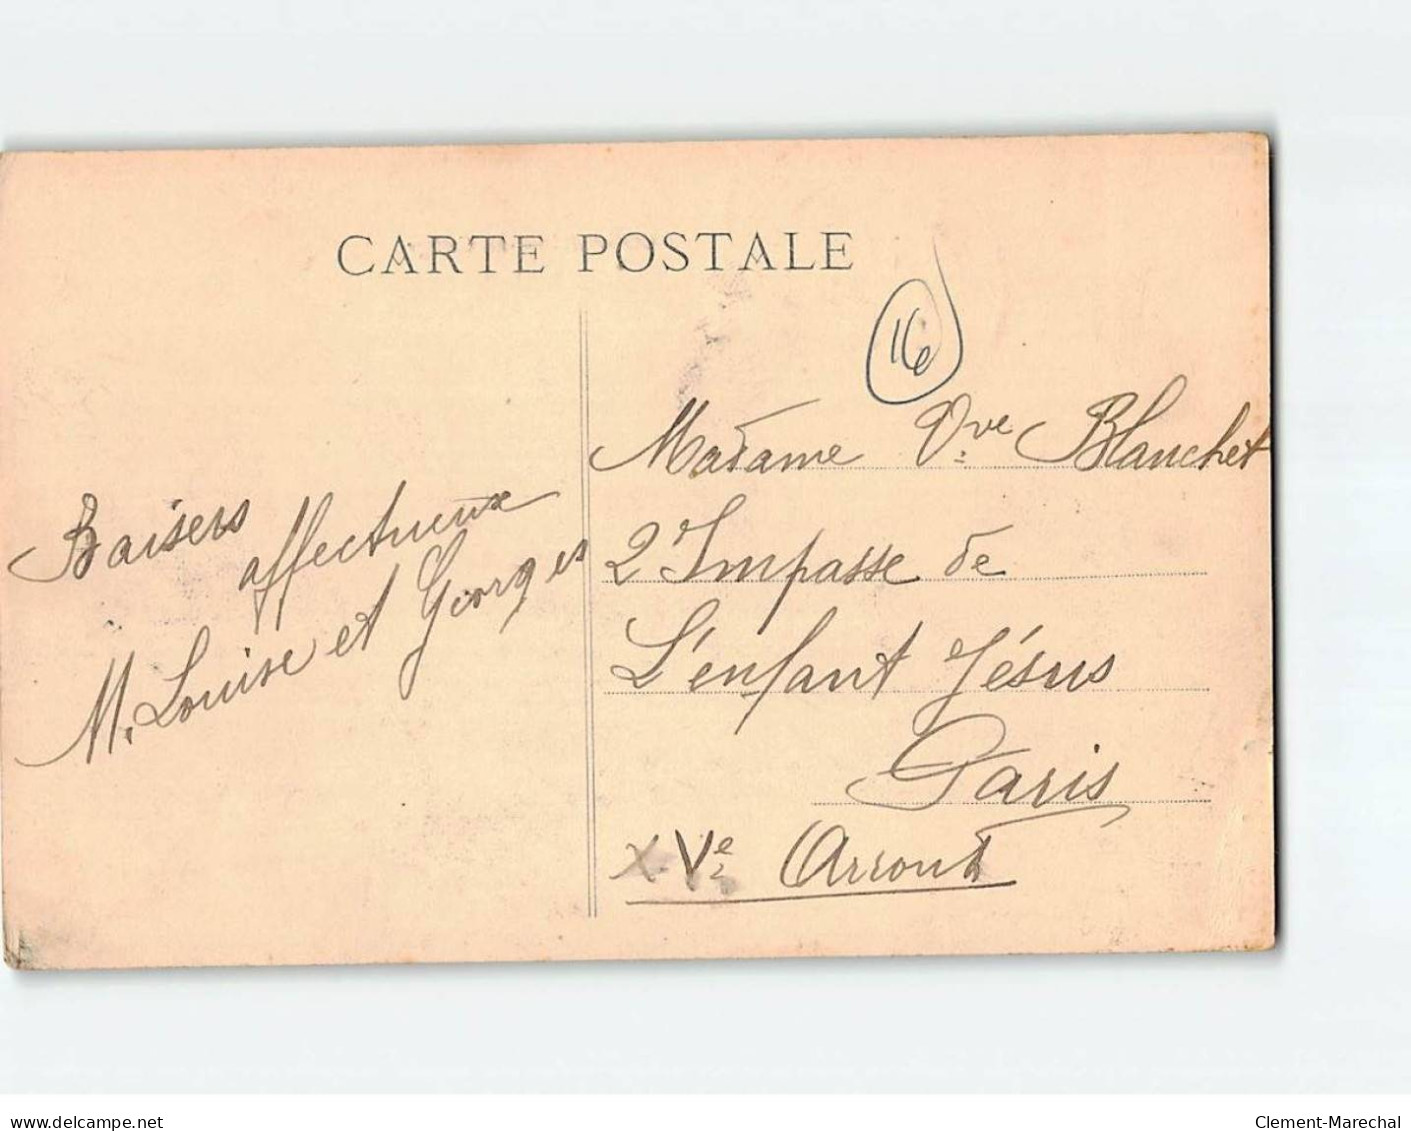 CARTE POSTALE
16
Baisers
affectueux
M. Louise et Georges
Madame Vve Blanchet
2 Impasse de
L'enfant Jésus
Paris
XVe Arrondt
www.delcampe.net
Clement-Marechal